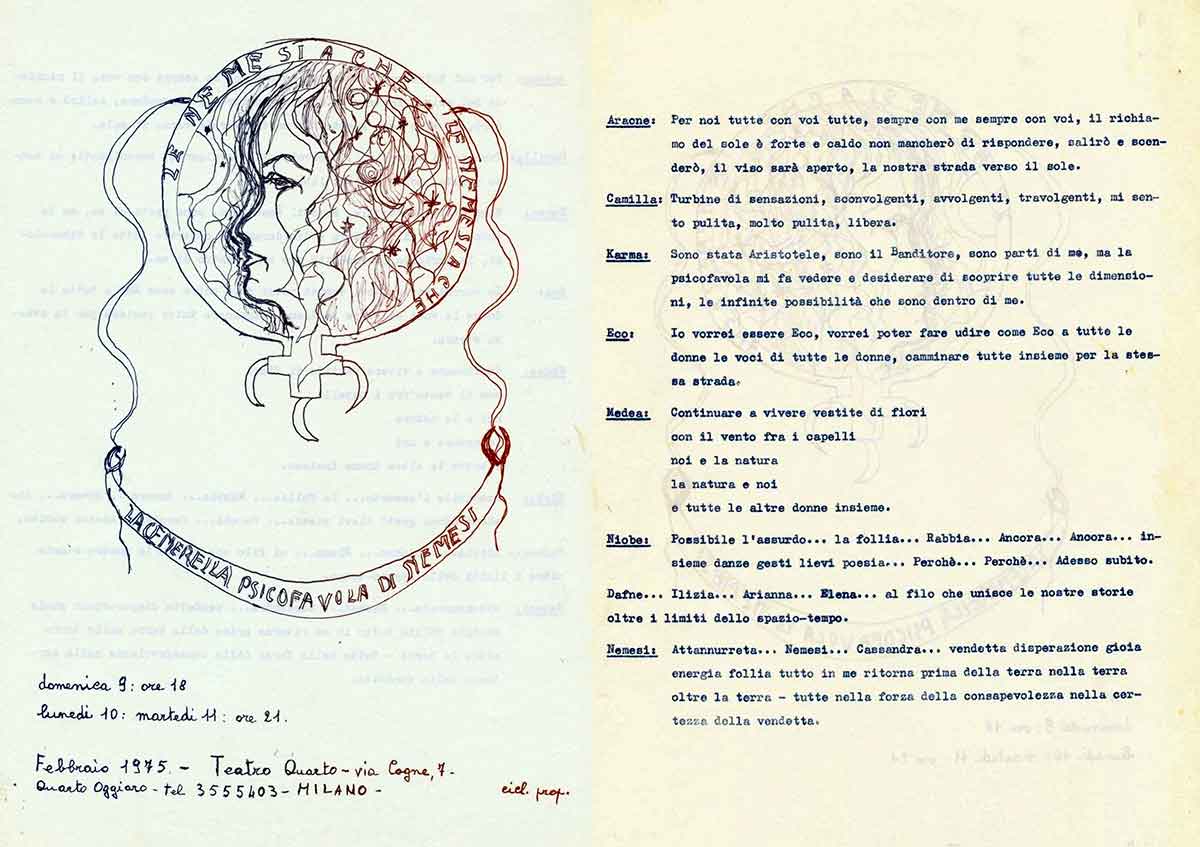 LE NEMESIACHE. LE NEMESIACHE
LA CENERELLA PSICOFAVOLA DI NEMESI
domenica 9: ore 18
lunedì 10: martedì 11: ore 21.
Febbraio 1975. - Teatro Quarto - via Cogne, 7 -
Quarto Oggiaro - tel 3555403 - MILANO -
cicl. prop.
Aracne: Per noi tutte con voi tutte, sempre con me sempre con voi, il richia-
mo del sole è forte e caldo non mancherò di rispondere, salirò e scen-
derò, il viso sarà aperto, la nostra strada verso il sole.
Camilla: Turbine di sensazioni, sconvolgenti, avvolgenti, travolgenti, mi sen-
to pulita, molto pulita, libera.
Karma: Sono stata Aristotele, sono il Banditore, sono parti di me, ma la
psicofavola mi fa vedere e desiderare di scoprire tutte le dimensio-
ni, le infinite possibilità che sono dentro di me.
Eco: Io vorrei essere Eco, vorrei poter fare udire come Eco a tutte le
donne le voci di tutte le donne, camminare tutte insieme per la stes-
sa strada.
Medea: Continuare a vivere vestite di fiori
con il vento fra i capelli
noi e la natura
la natura e noi
e tutte le altre donne insieme.
Niobe: Possibile l'assurdo... la follia... Rabbia... Ancora... Ancora... in-
sieme danze gesti lievi poesia... Perchè... Perchè... Adesso subito.
Dafne... Ilizia... Arianna... Elena... al filo che unisce le nostre storie
oltre i limiti dello spazio-tempo.
Nemesi: Attannurreta... Nemesi... Cassandra... vendetta disperazione gioia
energia follia tutto in me ritorna prima della terra nella terra
oltre la terra - tutte nella forza della consapevolezza nella cer-
tezza della vendetta.